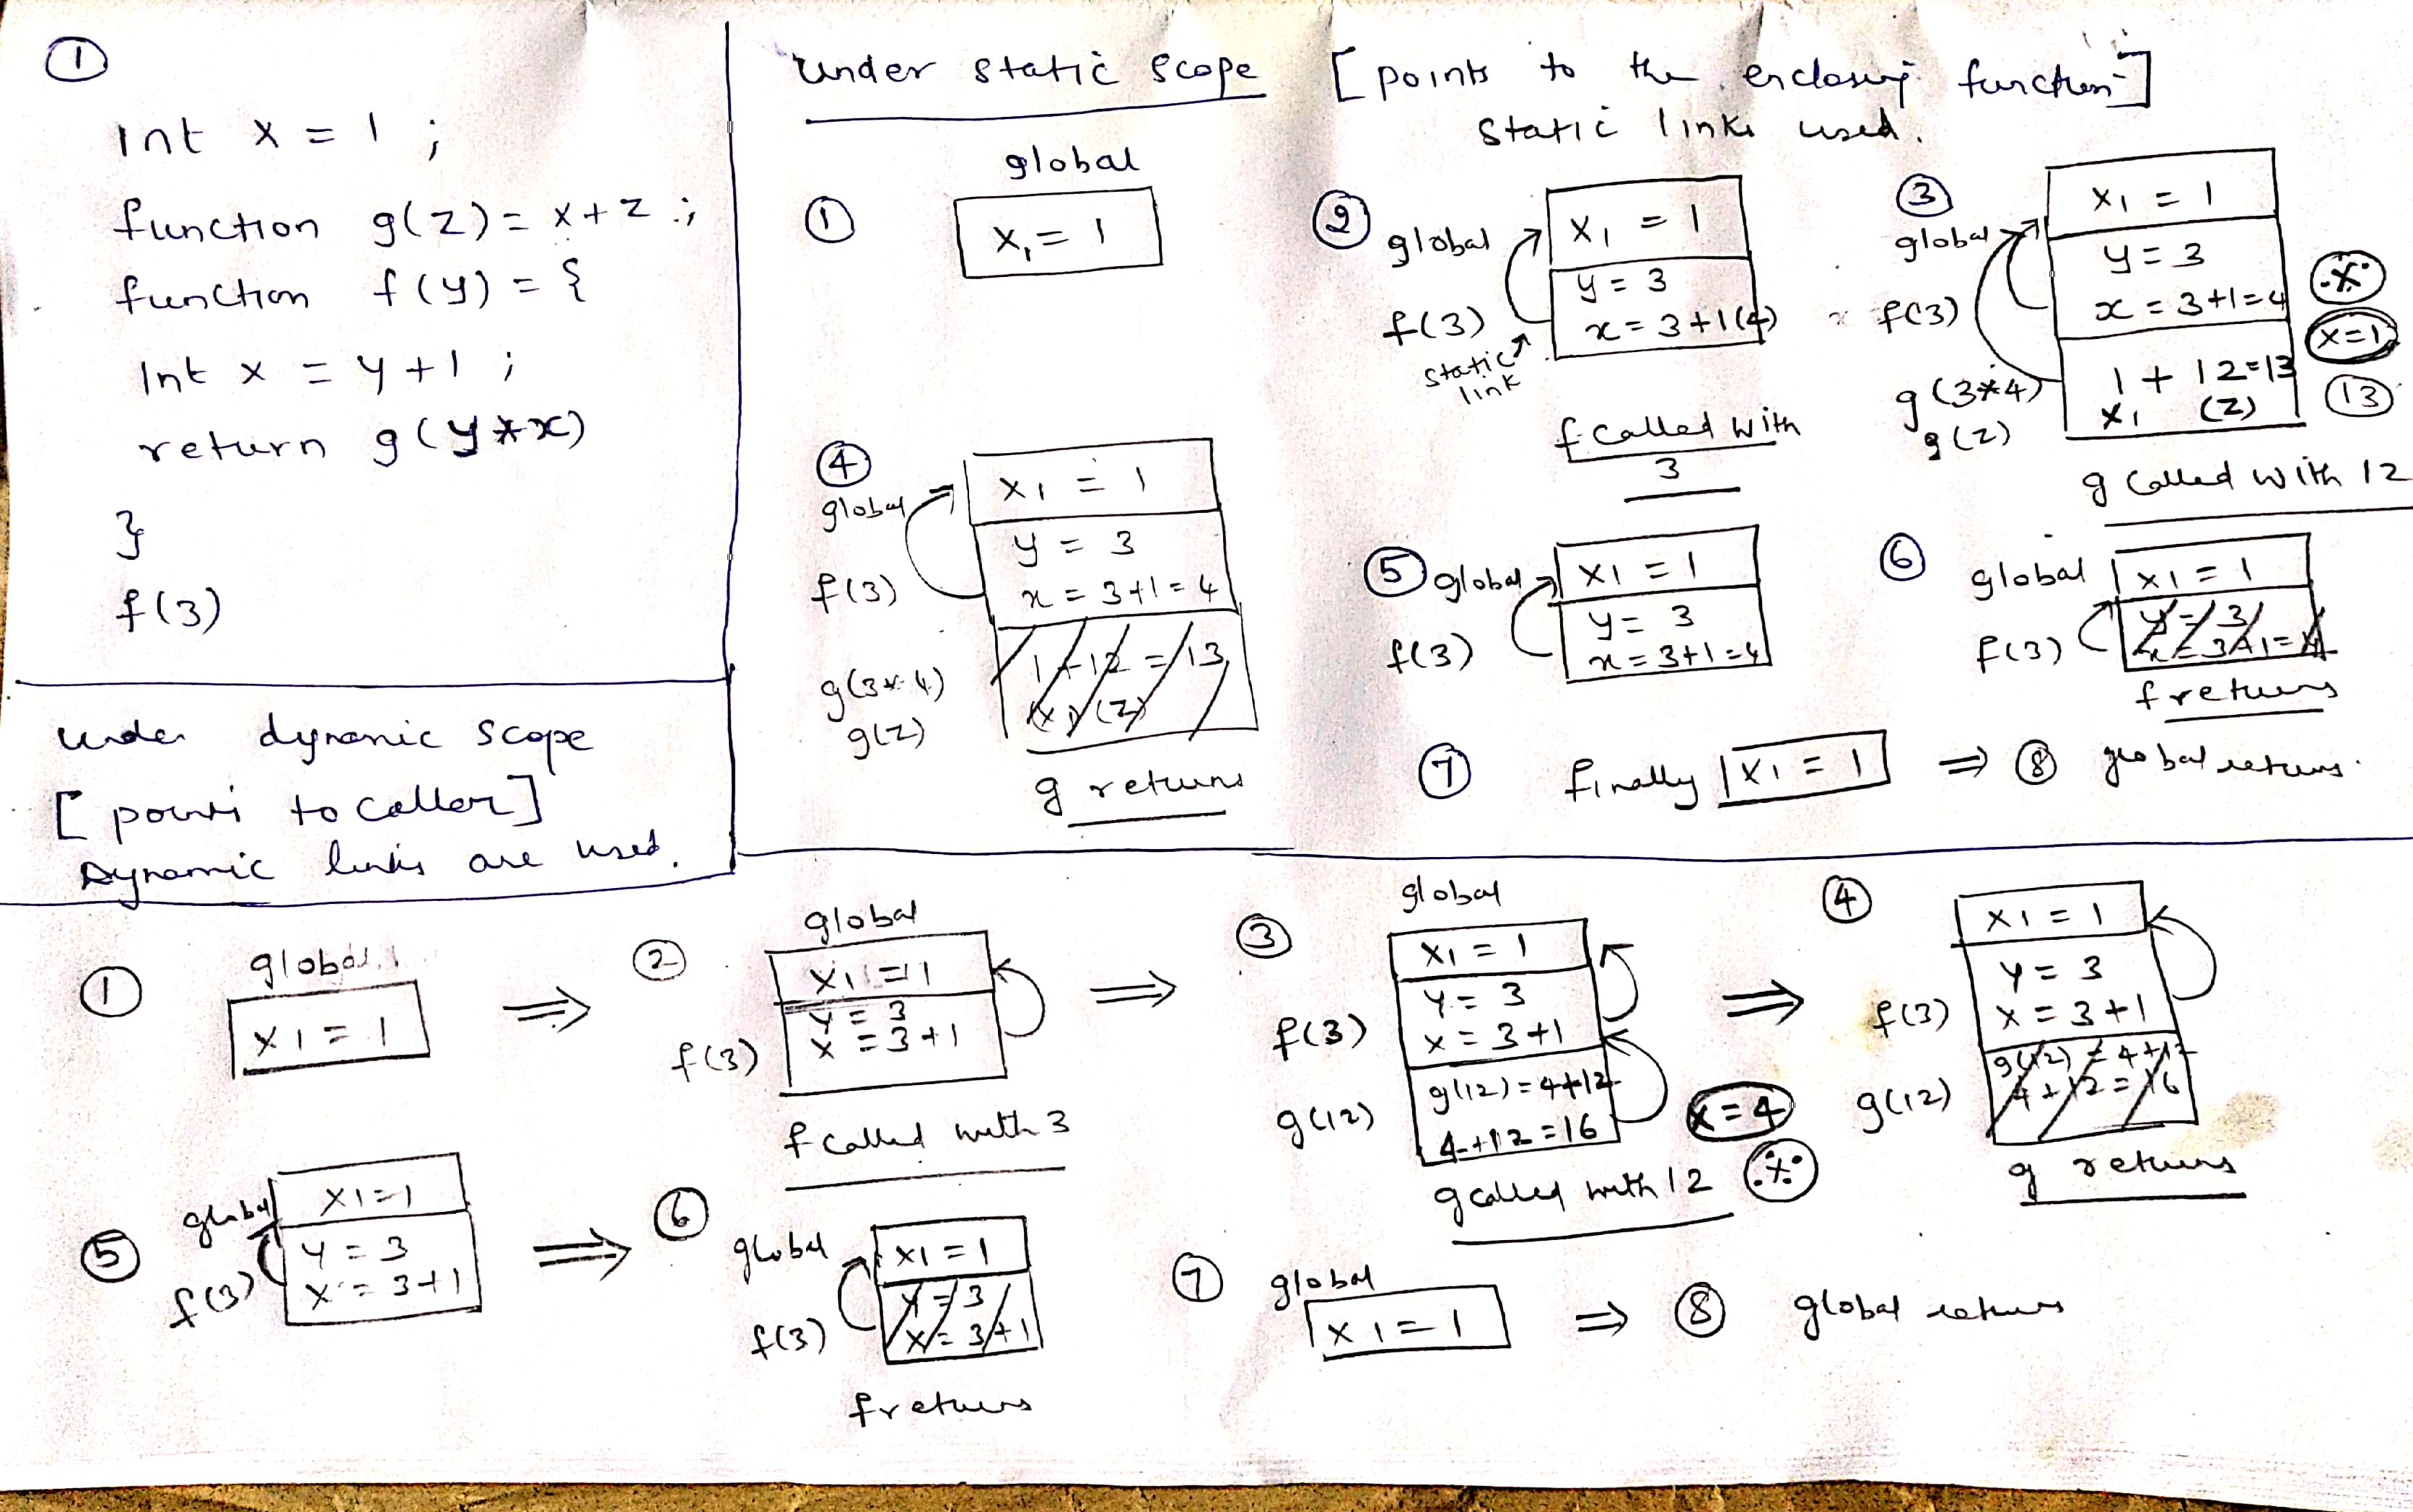 ①
int x = 1 ;
function g(z) = x+z ;
function f(y) = {
int x = y+1 ;
return g(y*x)
}
f(3)
under static scope [points to the enclosing function]
static links used.
①
global
x1 = 1
②
global
x1 = 1
f(3)
y = 3
x = 3+1(4)
static link
f called with
3
③
global
x1 = 1
f(3)
y = 3
x = 3+1=4
x=1
g(3*4)
g(z)
1 + 12=13
x1 (z)
13
g called with 12
④
global
x1 = 1
f(3)
y = 3
x = 3+1=4
g(3*4)
g(z)
1+12=13
x1 (z)
g returns
⑤ global
x1 = 1
f(3)
y = 3
x=3+1=4
⑥
global
x1 = 1
f(3)
y = 3
x = 3+1=4
f returns
⑦ finally x1 = 1 ⇒ ⑧ global returns.
under dynamic scope
[points to caller]
Dynamic links are used.
①
global
x1 = 1
⇒
②
global
x1 = 1
f(3)
y = 3
x = 3+1
f called with 3
⇒
③
global
x1 = 1
f(3)
y = 3
x = 3+1
g(12)
g(12)=4+12
4+12=16
x=4
g called with 12
⇒
④
x1 = 1
f(3)
y = 3
x = 3+1
g(12)
g(12) = 4+12
4+12=16
g returns
⑤
global
x1=1
f(3)
y = 3
x = 3+1
⇒
⑥
global
x1=1
f(3)
y=3
x=3+1
f returns
⑦ global
x1=1
⇒ ⑧ global returns